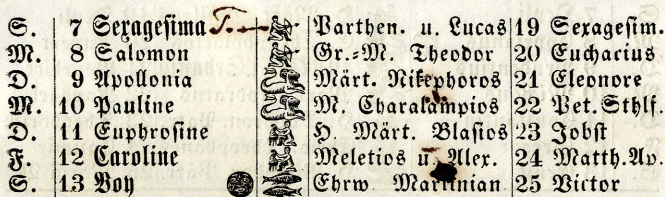 S. 7 Sexagesima T. Parthen. u. Lucas 19 Sexagesim.
M. 8 Salomon Gr.-M. Theodor 20 Eucharius
D. 9 Apollonia Märt. Nikephoros 21 Eleonore
M. 10 Pauline M. Charalampios 22 Pet. Sthlf.
D. 11 Euphrosine H. Märt. Blasios 23 Jobst
F. 12 Caroline Meletios u. Alex. 24 Matth. Ap.
S. 13 Boy Ehrw Martinian 25 Victor